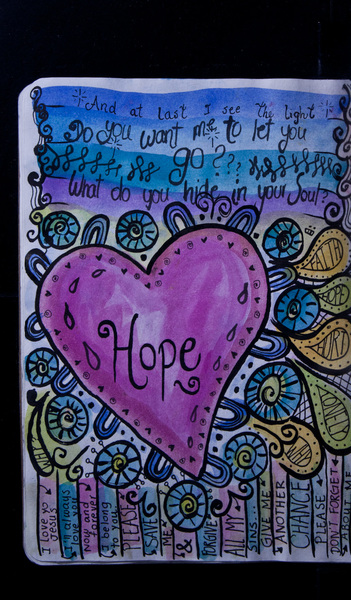 And at last I see the light
Do you want me to let you
go???
What do you hide in your Soul?
Hope
I love you
Jesus
I'll always
love you
Now and
forever
I belong
to you.
PLEASE
SAVE
ME
&
FORGIVE
ALL MY
SINS...
GIVE ME
ANOTHER
CHANCE
PLEASE
DON'T FORGET
ABOUT ME